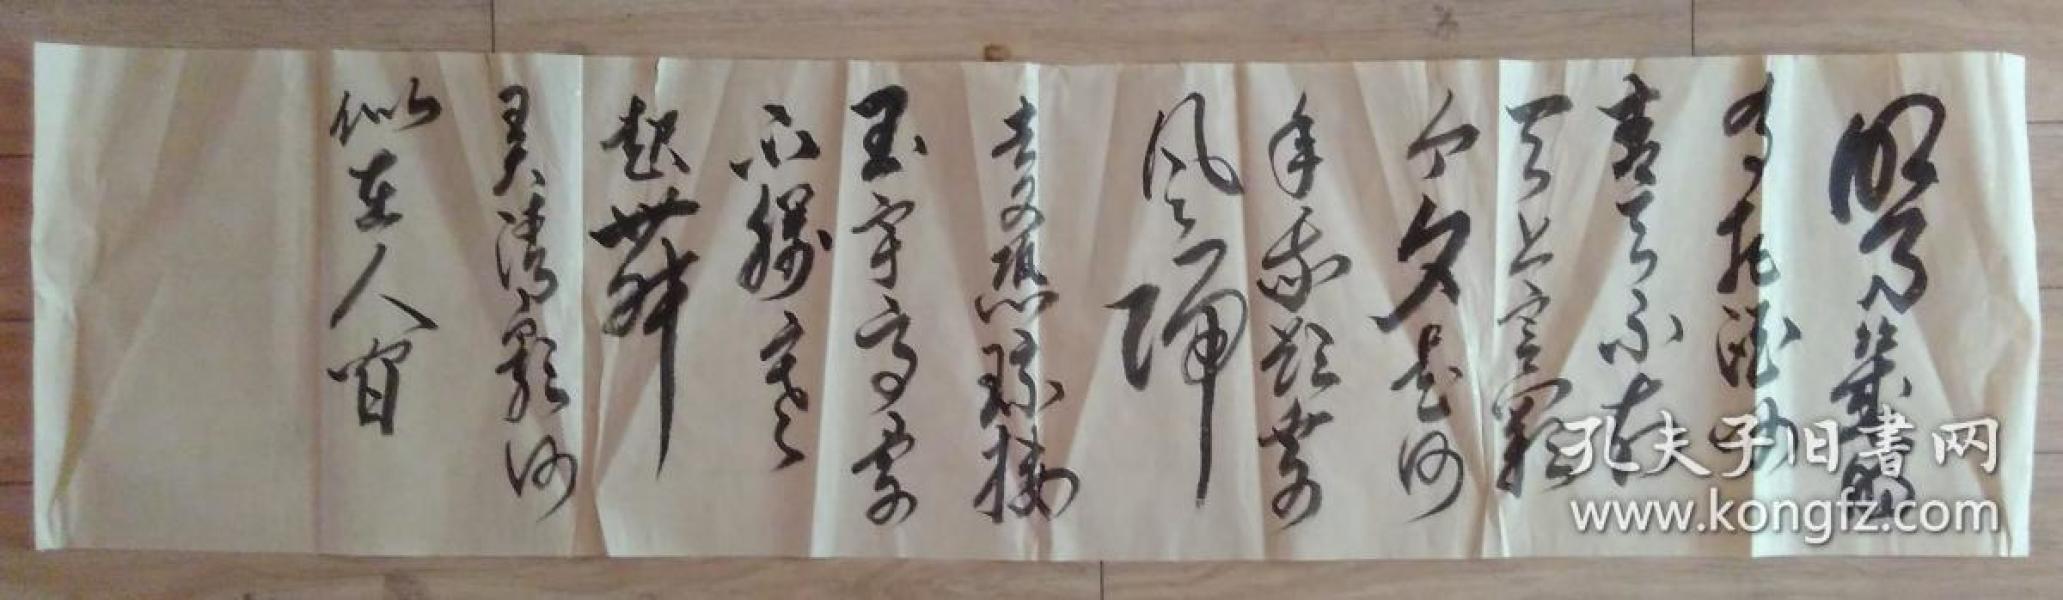 明月几时
有把酒问
青天不知
天上宫阙
今夕是何
年我欲乘
风归
去又恐琼楼
玉宇高处
不胜寒
起舞
弄清影何
似在人间
孔夫子旧书网
www.kongfz.com